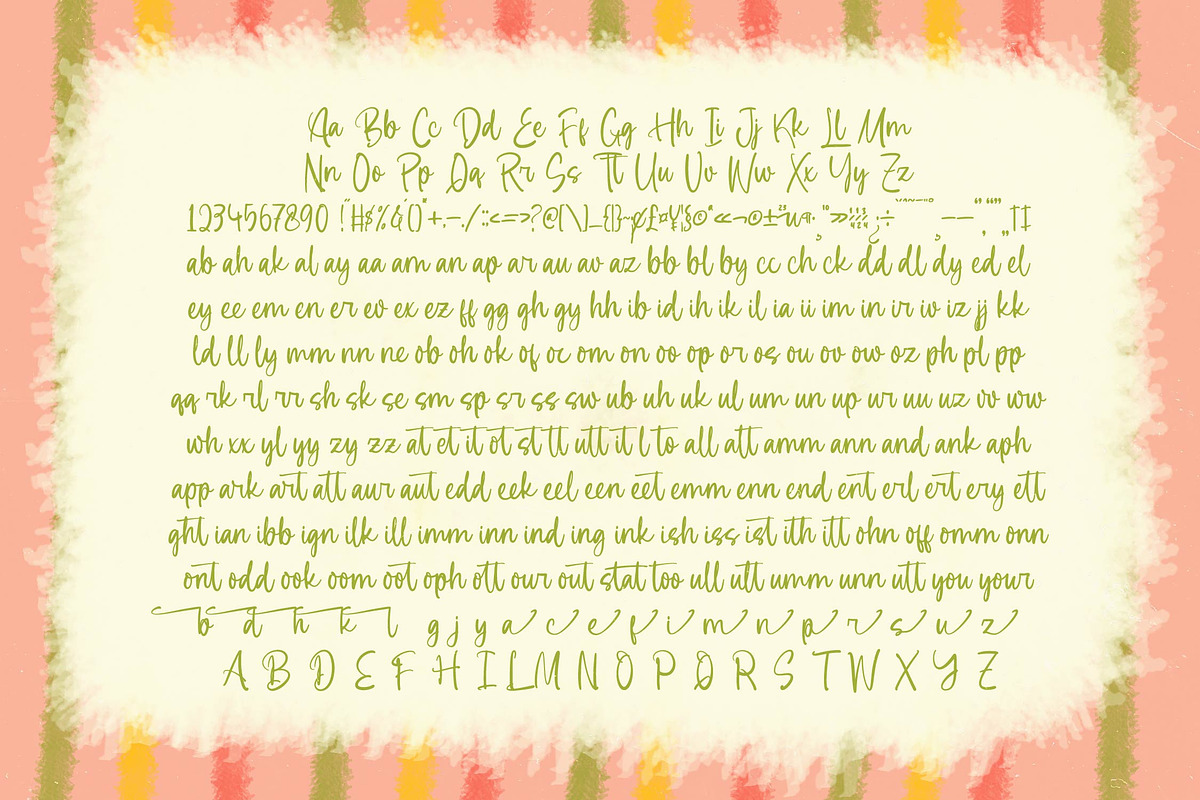 Aa Bb Cc Dd Ee Ff Gg Hh Ii Jj Kk Ll Mm
Nn Oo Pp Qq Rr Ss Tt Uu Vv Ww Xx Yy Zz
1234567890 !"#$%&'()*+,-./:;<=>?@[\]_{|}~¢£¤¥¦§©ª«¬®±²³µ¶·¸¹º»¼½¾¿÷ – — ‘ ’ ‚ “ ” „ † ‡
ab ah ak al ay aa am an ap ar au av az bb bl by cc ch ck dd dl dy ed el
ey ee em en er ev ex ez ff gg gh gy hh ib id ih ik il ia ii im in ir iv iz jj kk
ld ll ly mm nn ne ob oh ok of oc om on oo op or os ou ov ow oz ph pl pp
qq rk rl rr sh sk se sm sp sr ss sw ub uh uk ul um un up ur uu uz vv ww
wh xx yl yy zy zz at et it ot st tt utt it l to all att amm ann and ank aph
app ark art att aur aut edd eek eel een eet emm enn end ent erl ert ery ett
ght ian ibb ign ilk ill imm inn ind ing ink ish iss ist ith itt ohn off omm onn
ont odd ook oom oot oph ott our out stat too ull ult umm unn utt you your
b d h k l g j y a c e f i m n p r s u z
A B D E F H I L M N O P Q R S T W X Y Z